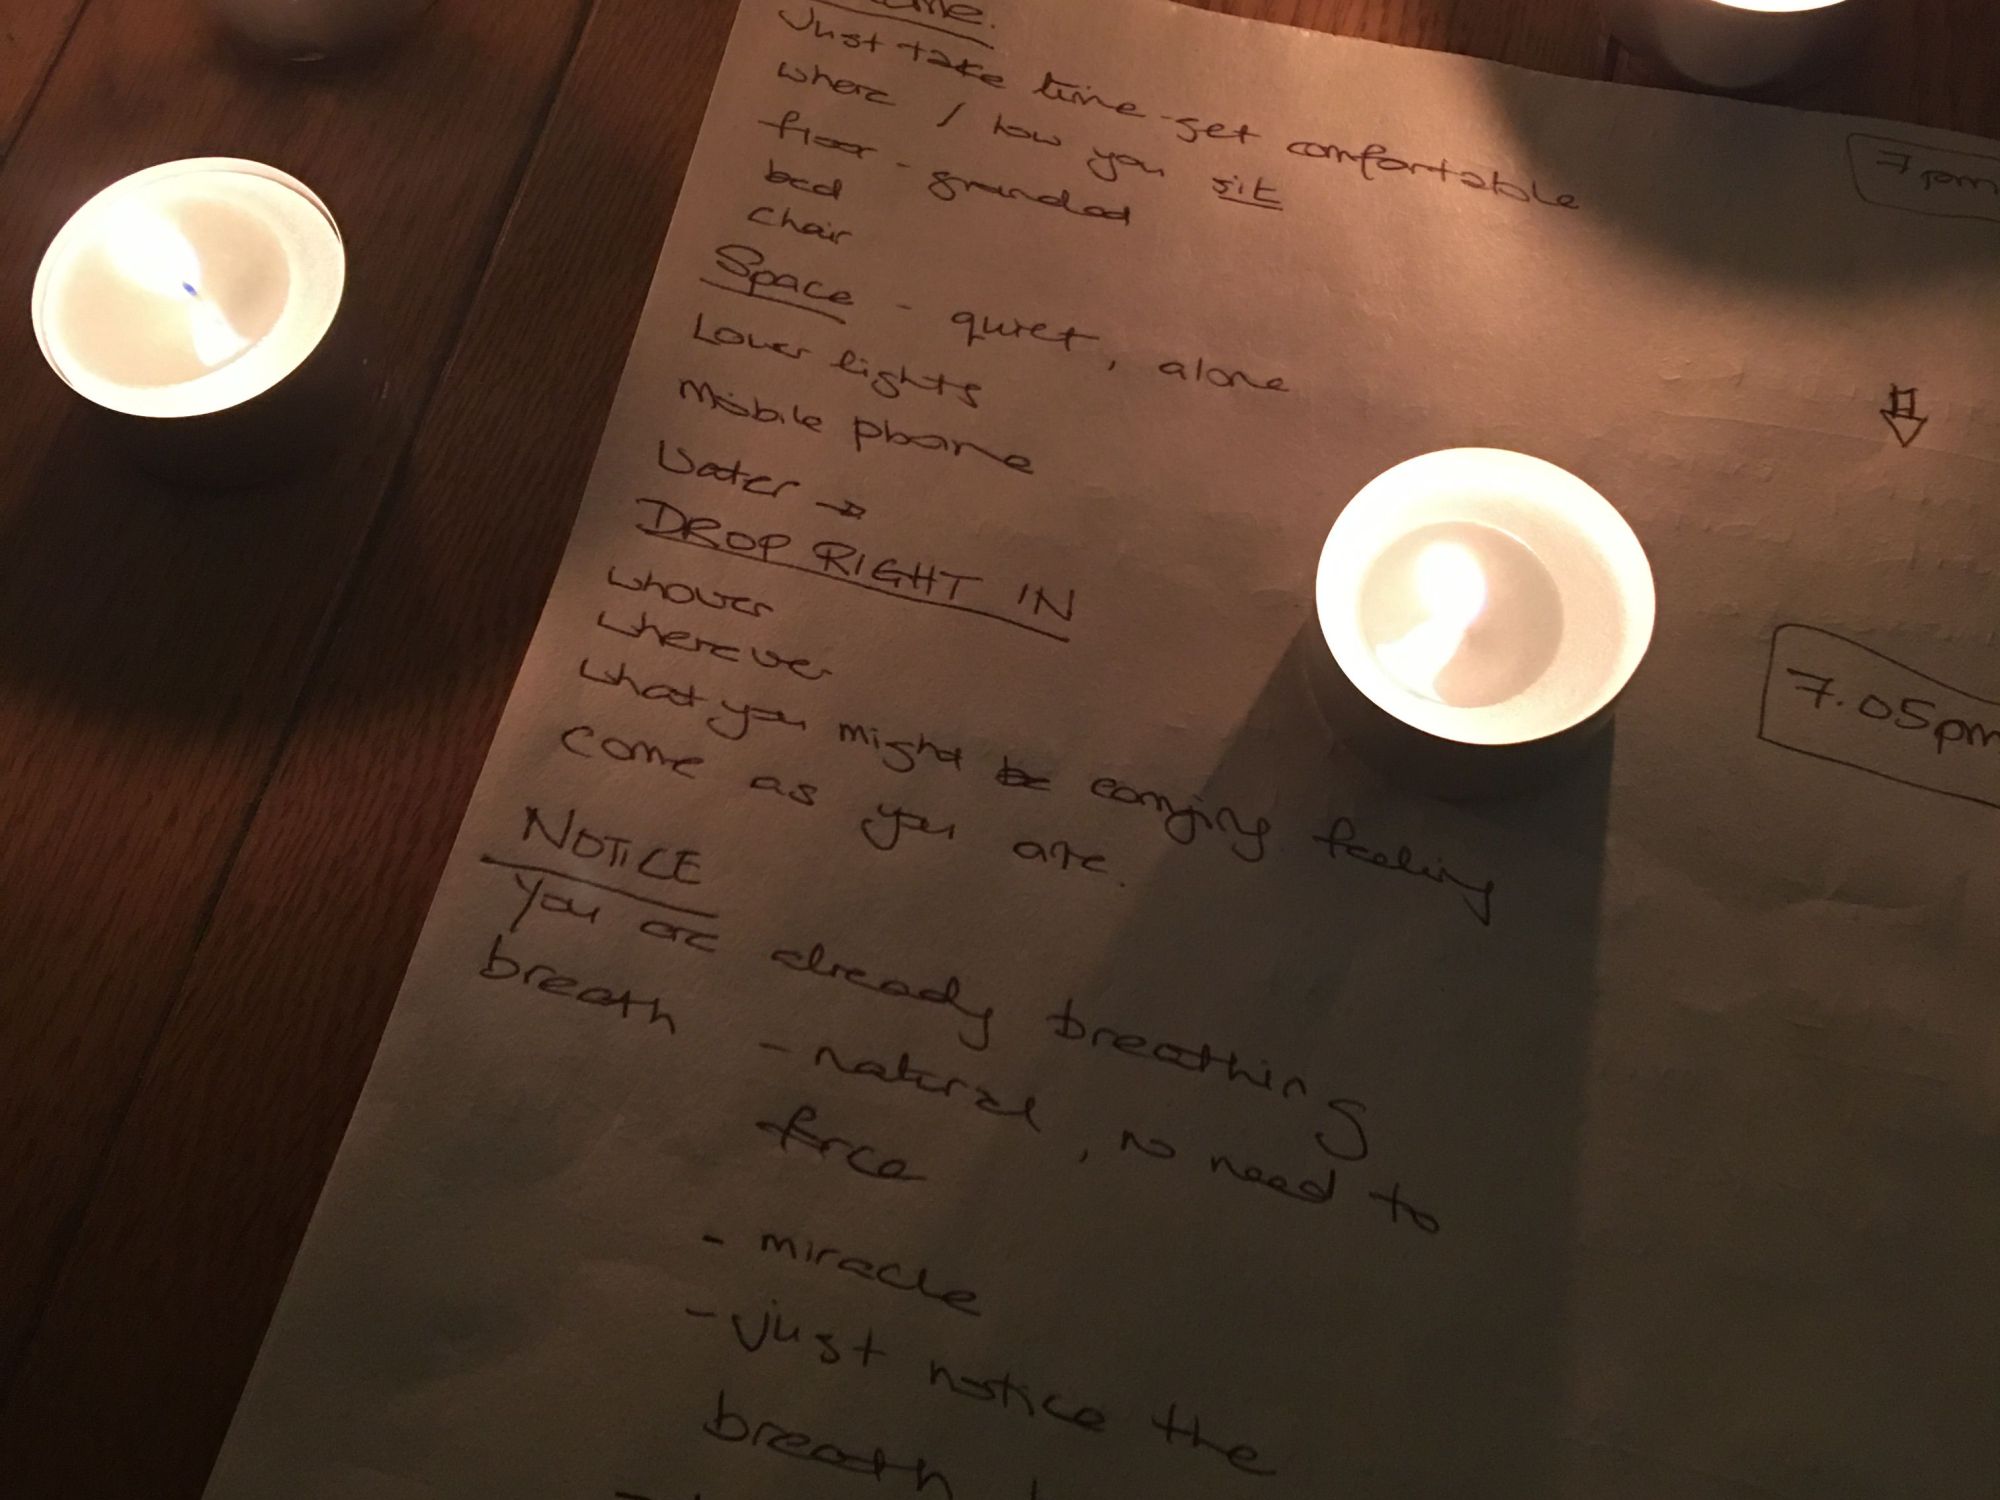 Just take time - get comfortable
7pm
where / how you sit
floor - grounded
bed
chair
Space - quiet, alone
Lower lights
Mobile phone
Water →
DROP RIGHT IN
whover
wherever
7.05pm
what you might be carrying feeling
come as you are.
NOTICE
You are already breathing
breath - natural, no need to
force
- miracle
- just notice the
breath